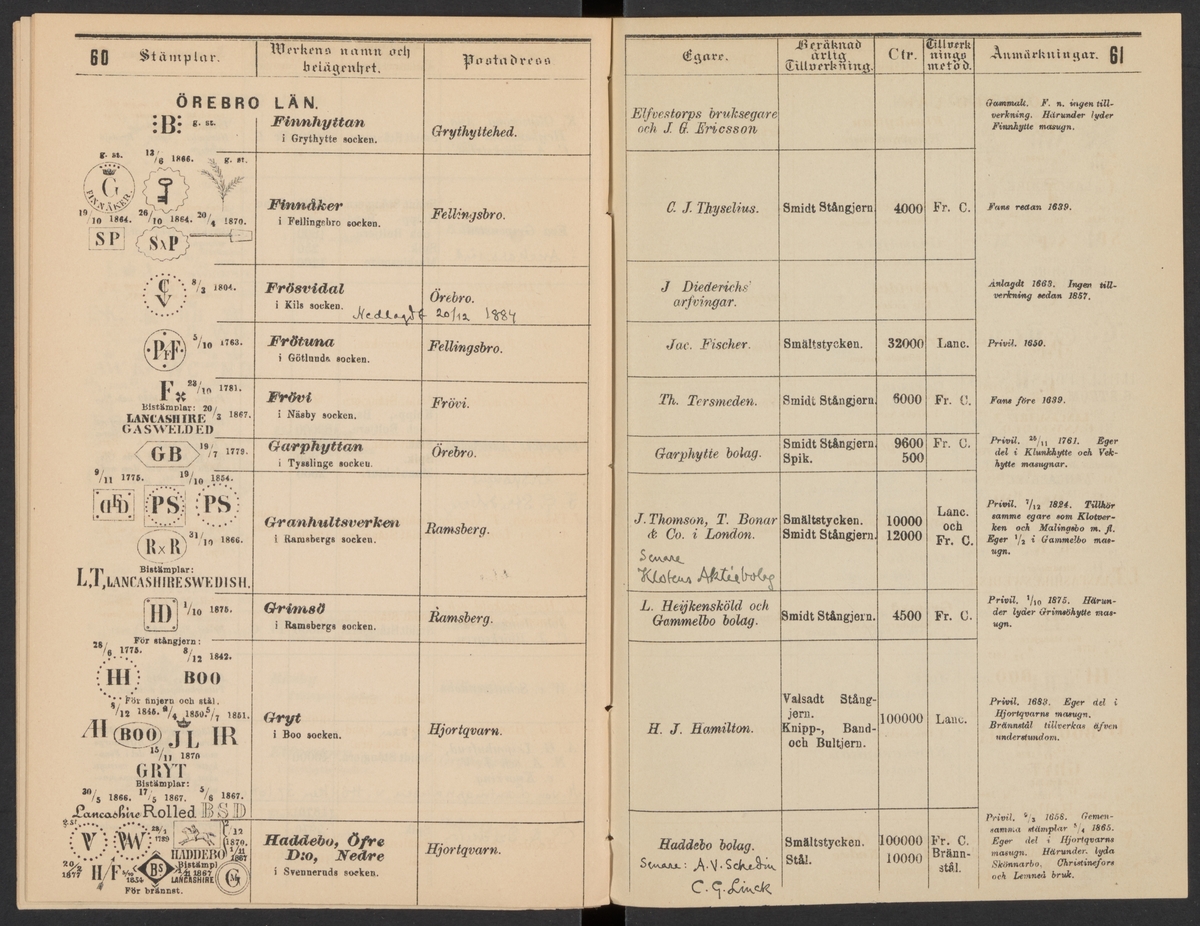 60 Stämplar. Werkens namn och belägenhet. Postadress
ÖREBRO LÄN.
:B: g. st.
Finnhyttan
i Grythytte socken.
Grythyttehed.
g. st. 12/6 1866. g. st.
G
FINNÅKER.
19/10 1864. 26/10 1864. 20/4 1870.
SP
Finnåker
i Fellingsbro socken.
Fellingsbro.
8/3 1804.
Frösvidal
i Kils socken.
Örebro.
Nedlagdt 20/12 1884
5/10 1763.
PFF
Frötuna
i Götlunds socken.
Fellingsbro.
F 23/10 1781.
Bistämplar: 20/3 1867.
LANCASHIRE
GASWELDED
Frövi
i Näsby socken.
Frövi.
GB 19/7 1779.
Garphyttan
i Tysslinge socken.
Örebro.
9/11 1775. 19/10 1854.
PS PS
R×R 31/10 1866.
Bistämplar:
L,T, LANCASHIRE SWEDISH.
Granhultsverken
i Ramsbergs socken.
Ramsberg.
HD 1/10 1875.
Grimsö
i Ramsbergs socken.
Ramsberg.
För stångjern:
28/6 1775. 8/12 1842.
HH BOO
För finjern och stål.
8/12 1845. 9/4 1850. 5/7 1851.
AH BOO JL HR
15/11 1870
GRYT
Bistämplar:
30/5 1866. 17/5 1867. 5/6 1867.
Lancashire Rolled BSD
Gryt
i Boo socken.
Hjortqvarn.
V VW 28/1 1789 2/12 1870.
HADDEBO 1/11 1867
20/2 1877 H/F BS
Bistämpl
1/11 1867
LANCASHIRE
För brännst.
Haddebo, Öfre
D:o, Nedre
i Svenneruds socken.
Hjortqvarn.
Egare. Beräknad årlig Tillverkning. Ctr. Tillverknings metod. Anmärkningar. 61
Elfvestorps bruksegare
och J. G. Ericsson
Gammalt. F. n. ingen till-
verkning. Härunder lyder
Finnhytte masugn.
C. J. Thyselius. Smidt Stångjern. 4000 Fr. C. Fans redan 1639.
J Diederichs'
arfvingar.
Anlagdt 1663. Ingen till-
verkning sedan 1857.
Jac. Fischer. Smältstycken. 32000 Lanc. Privil. 1650.
Th. Tersmeden. Smidt Stångjern. 6000 Fr. C. Fans före 1639.
Garphytte bolag.
Smidt Stångjern. 9600 Fr. C.
Spik. 500
Privil. 28/11 1761. Eger
del i Klunkhytte och Vek-
hytte masugnar.
J. Thomson, T. Bonar
& Co. i London.
Senare
Klotens Aktiebolag
Smältstycken. 10000 Lanc.
och
Smidt Stångjern. 12000 Fr. C.
Privil. 7/12 1824. Tillhör
samme egare som Klotver-
ken och Malingsbo m. fl.
Eger 1/2 i Gammelbo mas-
ugn.
L. Heijkensköld och
Gammelbo bolag.
Smidt Stångjern. 4500 Fr. C.
Privil. 1/10 1875. Härun-
der lyder Grimsöhytte mas-
ugn.
H. J. Hamilton.
Valsadt Stång-
jern.
Knipp-, Band-
och Bultjern.
100000 Lanc.
Privil. 1683. Eger del i
Hjortqvarns masugn.
Brännstål tillverkas äfven
understundom.
Haddebo bolag.
Senare: A. V. Schedin
C. G. Linck
Smältstycken. 100000 Fr. C.
Stål. 10000 Bränn-
stål.
Privil. 6/3 1658. Gemen-
samma stämplar 5/4 1865.
Eger del i Hjortqvarns
masugn. Härunder lyda
Skönnarbo, Christinefors
och Lemned bruk.